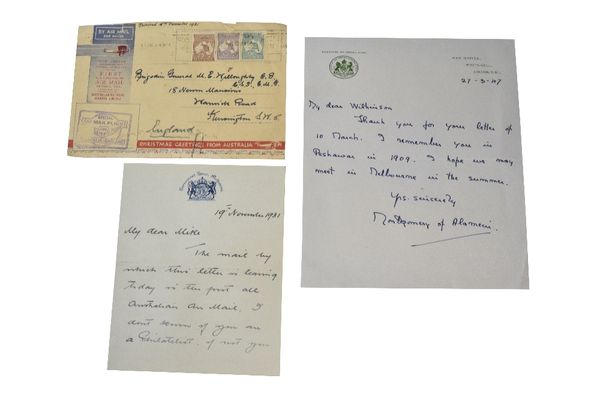 BY AIR MAIL
FIRST
AIR MAIL
SPECIAL
Brigadier General M. E. Willoughby C.B.
C.S.I. C.M.G.
18 Neven Mansions
Warwick Road
Kensington S.W.5
England
CHRISTMAS GREETINGS FROM AUSTRALIA
19th November 1931
My dear Mike
The mail by
which this letter is leaving
today is the first all
Australian Air Mail. I
dont know if you are
a Philatelist. if not you
27-3-47
My dear Wilkinson
Thank you for your letter of
10 March. I remember you in
Peshawar in 1909. I hope we may
meet in Melbourne in the summer.
Yrs. sincerely
Montgomery of Alamein.